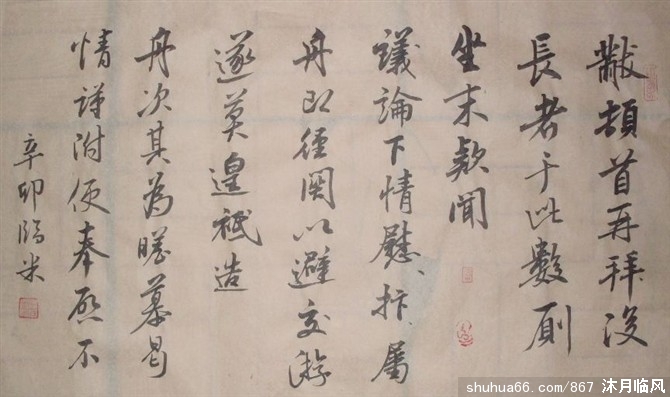 黻頓首再拜後
長者于此數廁
坐末欵聞
議論下情慰抃屬
舟即徑関以避交游
遂莫遑祗造
舟次其為瞻慕曷
情謹附便奉啓不
辛卯臨米
shuhua66.com/867 沐月临风